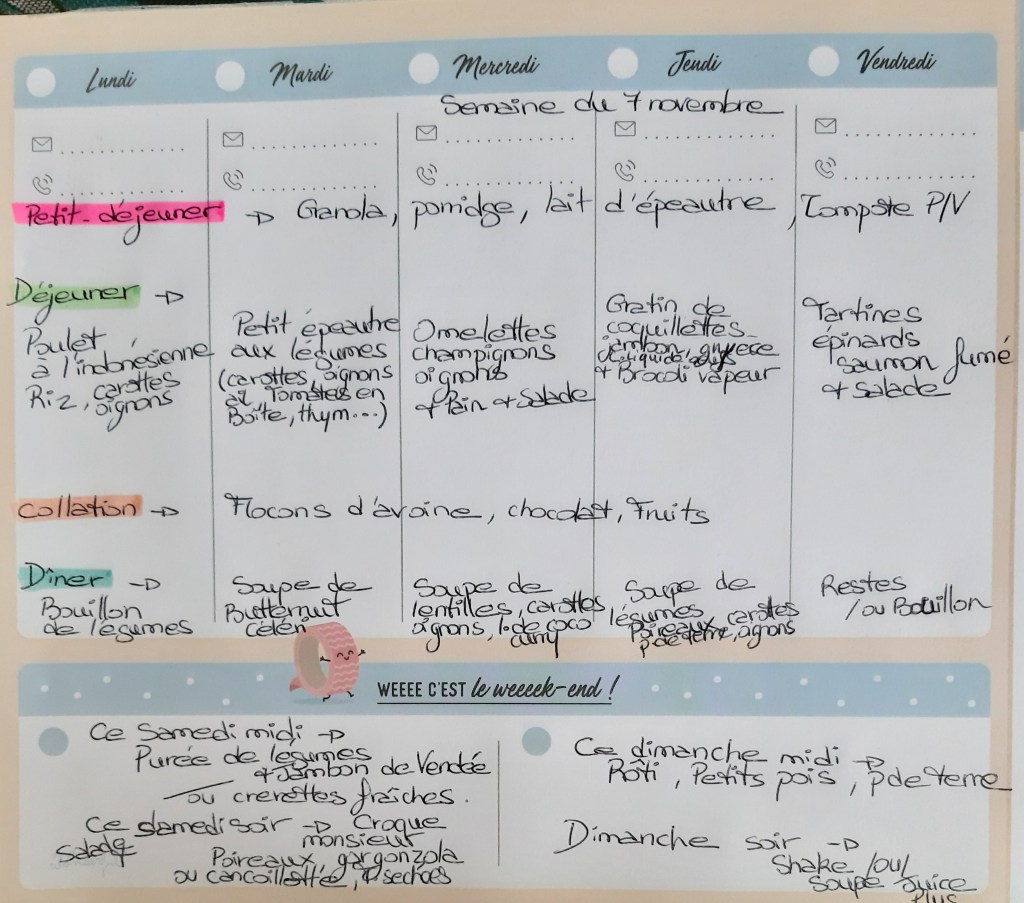 Lundi
Mardi
Mercredi
Jeudi
Vendredi
Semaine du 7 novembre
Petit-déjeuner → Ganola, porridge, lait d'épeautre, Compote P/V
Déjeuner →
Poulet
à l'indonésienne
Riz, carottes
oignons
Petit épeautre
aux légumes
(carottes, oignons
ail, Tomates en
Boîte, thym...)
Omelettes
champignons
oignons
+ Pain + Salade
Gratin de
coquillettes
jambon, gruyère
+ Brocoli vapeur
Tartines
épinards
saumon fumé
+ Salade
Collation → Flocons d'avoine, chocolat, Fruits
Dîner →
Bouillon
de légumes
Soupe de
Butternut
céleri
Soupe de
lentilles, carottes
oignons, l. de coco
curry
Soupe de
légumes
Poireaux, carottes
p de terre, oignons
Restes
/ou Bouillon
WEEEE C'EST le weeeek-end !
Ce Samedi midi →
Purée de légumes
+ Jambon de Vendée
ou crevettes fraîches.
Ce samedi soir → Croque
monsieur
Salade
Poireaux, gorgonzola
ou cancoillotte, T séchées
Ce dimanche midi →
Rôti, Petits pois, p de terre
Dimanche soir →
Shake /ou/
soupe Juice
Plus